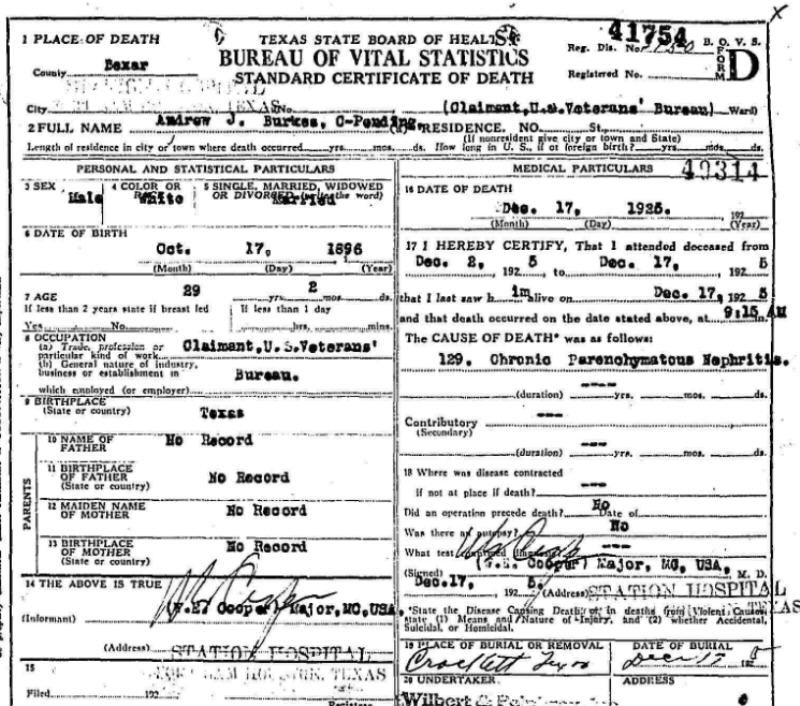 TEXAS STATE BOARD OF HEALTH
41754
BUREAU OF VITAL STATISTICS
STANDARD CERTIFICATE OF DEATH
Reg. Dis. No.
B. O. V. S.
FORM D
Registered No.
1 PLACE OF DEATH
County Bexar
STATION HOSPITAL
City TEXAS No. (Claimant, U.S. Veterans' Bureau) Ward)
2 FULL NAME Andrew J. Burkes, C-Pending. RESIDENCE. NO. St.
(If nonresident give city or town and State)
Length of residence in city or town where death occurred yrs. mos. ds. How long in U. S., if of foreign birth? yrs. mos. ds.
PERSONAL AND STATISTICAL PARTICULARS
3 SEX Male
4 COLOR OR White
5 SINGLE, MARRIED, WIDOWED OR DIVORCED (write the word) Married
6 DATE OF BIRTH
Oct. 17, 1896
(Month) (Day) (Year)
7 AGE 29 yrs. 2 mos. ds.
If less than 2 years state if breast fed
Yes No
If less than 1 day
hrs. mins.
8 OCCUPATION
(a) Trade, profession or particular kind of work Claimant, U.S. Veterans'
(b) General nature of industry, business or establishment in Bureau.
which employed (or employer)
9 BIRTHPLACE
(State or country) Texas
PARENTS
10 NAME OF FATHER No Record
11 BIRTHPLACE OF FATHER No Record
(State or country)
12 MAIDEN NAME OF MOTHER No Record
13 BIRTHPLACE OF MOTHER No Record
(State or country)
14 THE ABOVE IS TRUE
(Informant) (W.E. Cooper) Major, MC, USA.
(Address) STATION HOSPITAL
HOUSTON, TEXAS
15
Filed 192
MEDICAL PARTICULARS 49314
16 DATE OF DEATH
Dec. 17, 1925. 192
(Month) (Day) (Year)
17 I HEREBY CERTIFY, That I attended deceased from
Dec. 2, 192 5 to Dec. 17, 192 5
that I last saw h im alive on Dec. 17, 192 5
and that death occurred on the date stated above, at 9:15 AM m.
The CAUSE OF DEATH* was as follows:
129. Chronic Parenchymatous Nephritis.
(duration) yrs. mos. ds.
Contributory ---
(Secondary)
(duration) --- yrs. mos. ds.
18 Where was disease contracted
if not at place if death? ---
Did an operation precede death? No Date of
Was there an autopsy? No
What test ---
(W.E. Cooper) Major, MC, USA,
(Signed) M. D.
Dec. 17, 192 5. (Address) STATION HOSPITAL
TEXAS
*State the Disease Causing Death, or, in deaths from Violent Causes, state (1) Means and Nature of Injury, and (2) whether Accidental, Suicidal, or Homicidal.
19 PLACE OF BURIAL OR REMOVAL
Crockett Texas
DATE OF BURIAL
Dec 17 192 5
20 UNDERTAKER
Wilbert
ADDRESS